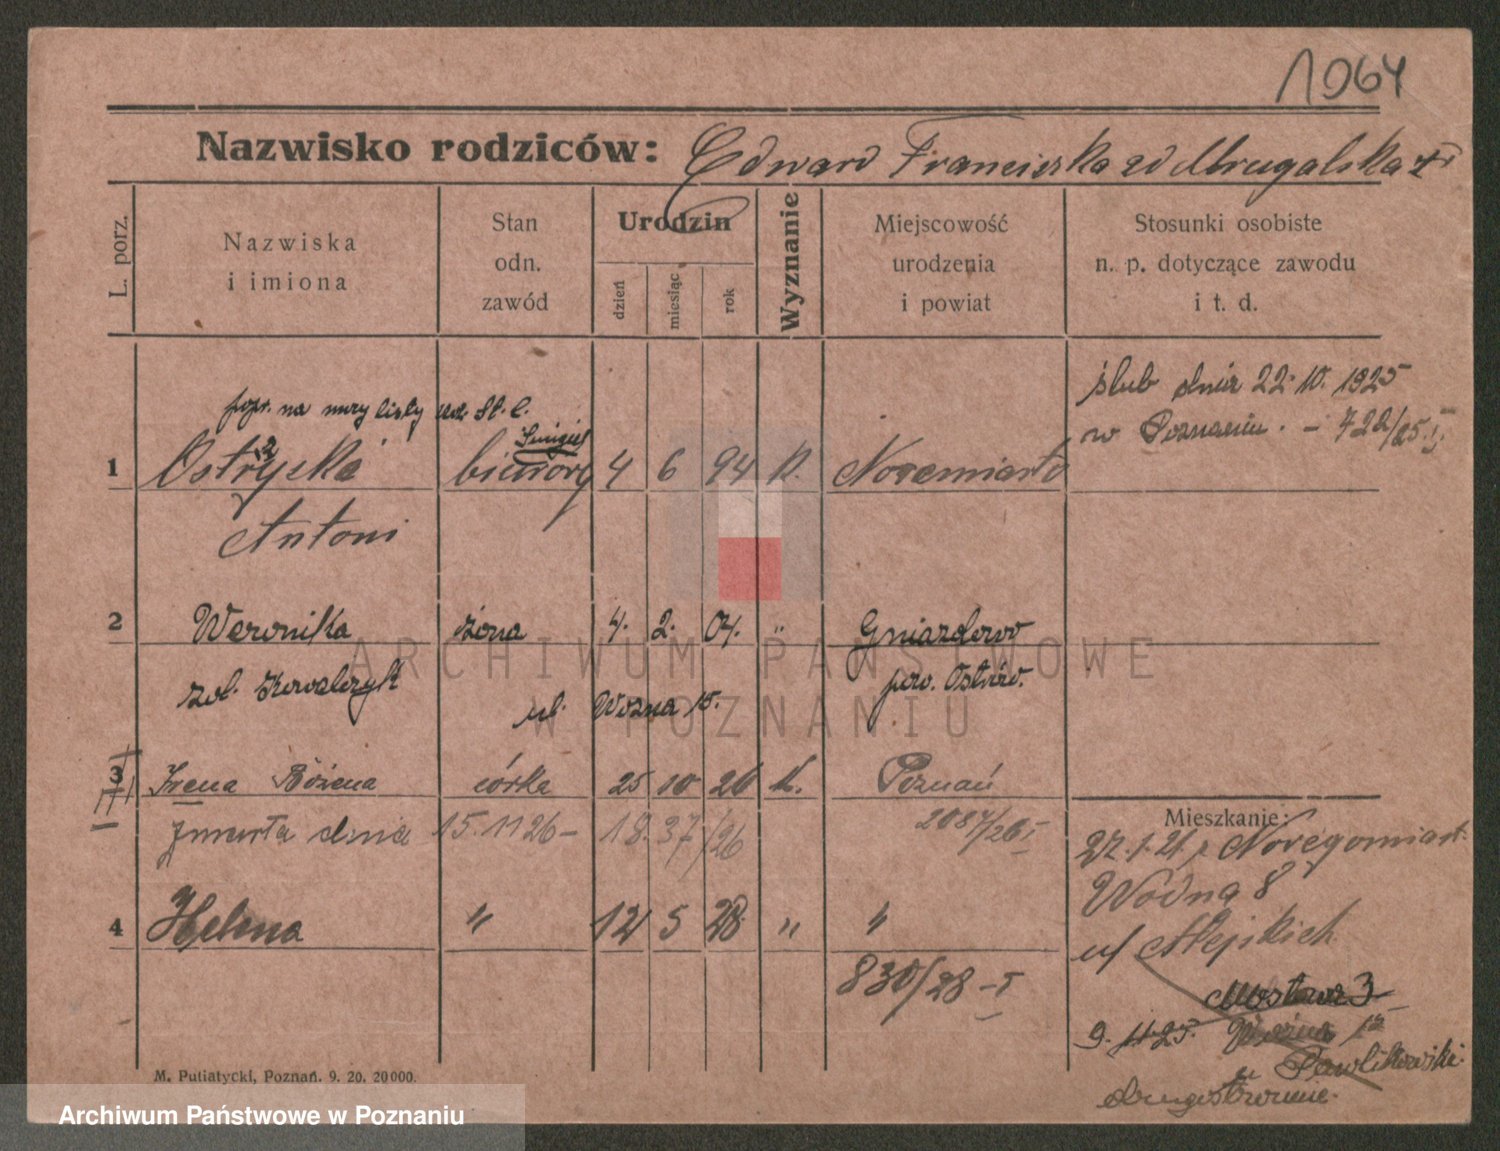 1964
Nazwisko rodziców: Edward Franciszka zd Mrugalska
L. porz.
Nazwiska
i imiona
Stan
odn.
zawód
Urodzin
dzień
miesiąc
rok
Wyznanie
Miejscowość
urodzenia
i powiat
Stosunki osobiste
n. p. dotyczące zawodu
i t. d.
ślub dnia 22.10.1925
w Poznaniu. - 722/25 I
popr. na
1 Ostrycki 4 6 94 k. Novemiasto
Antoni
2 Weronika żona 4. 2. 04. " Gniazdowo
zol. Kowalczyk pow. Ostrów.
ul. Wozna 15.
3 Irena Bożena córka 25 10 26 k. Poznań
zmarła dnia 15.11 26 - 18. 37/26 2087/26 I
4 Helena " 12 5 28 " "
830/28 - I
Mieszkanie:
27.1.21
Wodna 8
ul
Mostowa 3
9. 11 25. Wozna 15
u Pawlikowski
M. Putiatycki, Poznań. 9. 20. 20000.
ARCHIWUM PAŃSTWOWE
W POZNANIU
Archiwum Państwowe w Poznaniu